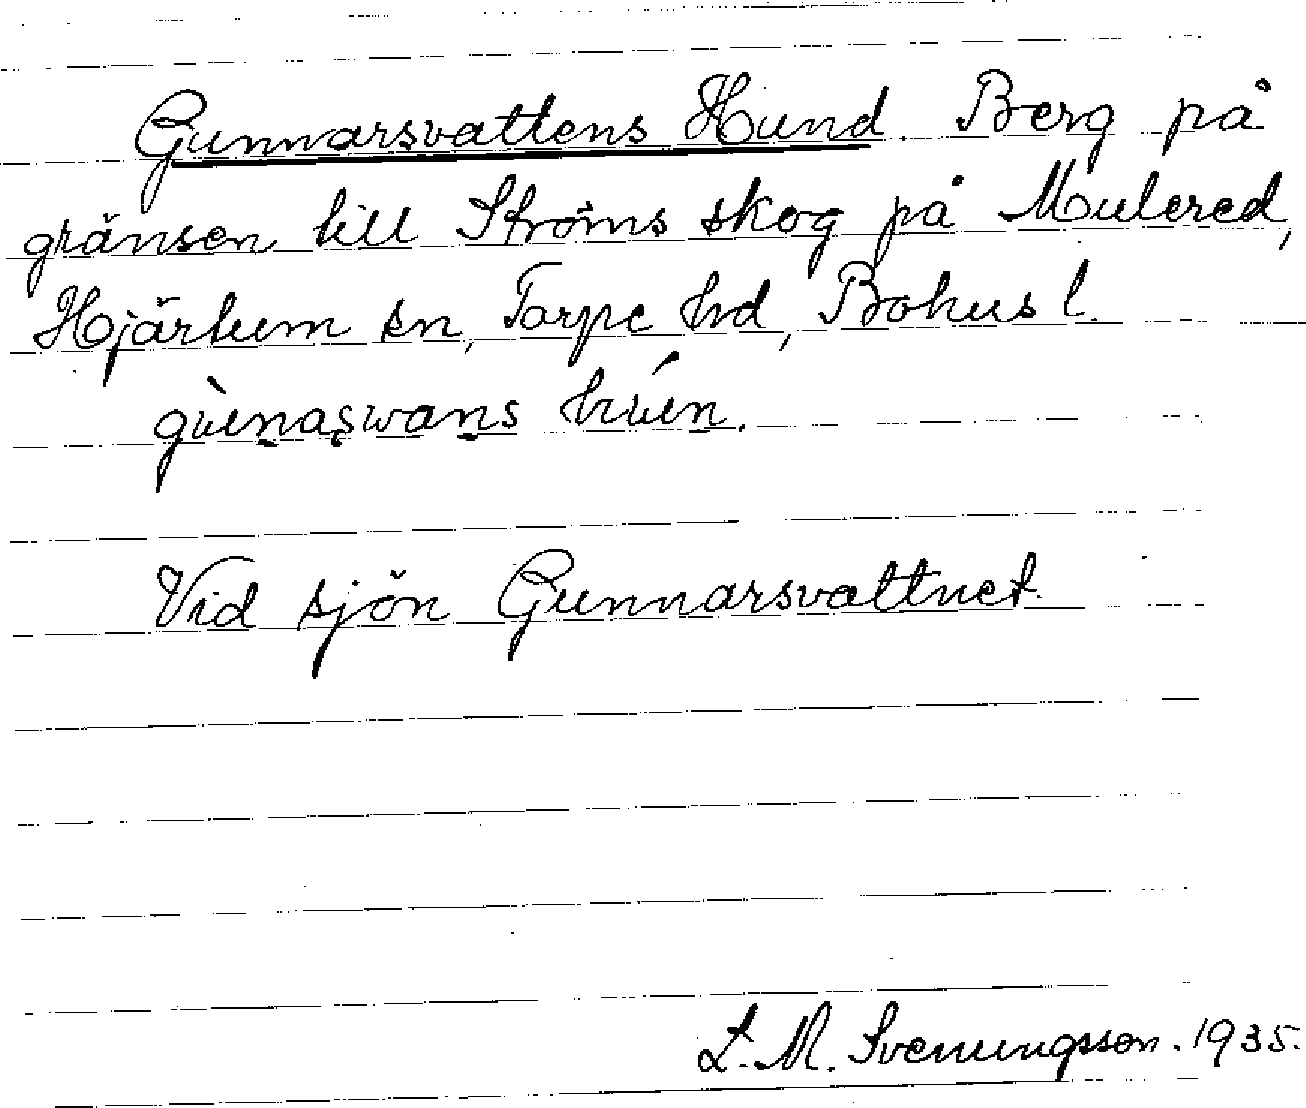 Gunnarsvattens Hund. Berg på
gränsen till Ströms skog på Mulered,
Hjärtum sn, Torpe hd, Bohus l.
Vid sjön Gunnarsvattnet.
L. M. Svenungsson. 1935.